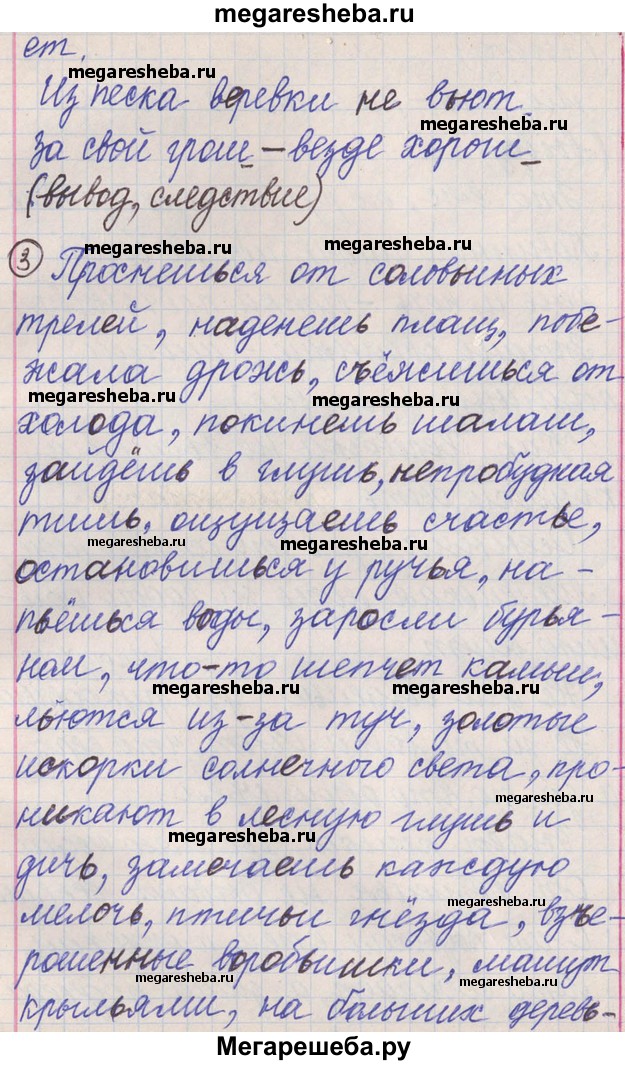 megaresheba.ru
ет.
megaresheba.ru
Из песка веревки не вьют.
megaresheba.ru
За свой грош – везде хорош
(вывод, следствие)
megaresheba.ru
megaresheba.ru
3 Проснешься от соловьиных
трелей, наденешь плащ, побе-
megaresheba.ru
megaresheba.ru
жала дрожь, съёжишься от
megaresheba.ru
megaresheba.ru
холода, покинешь шалаш,
зайдёшь в глушь, непробудная
тишь, ощущаешь счастье,
megaresheba.ru
megaresheba.ru
остановишься у ручья, на-
пьёшься воды, заросли бурья-
ном, что-то шепчет камыш,
megaresheba.ru
megaresheba.ru
льются из-за туч, золотые
искорки солнечного света, про-
megaresheba.ru
никают в лесную глушь и
megaresheba.ru
дичь, замечаешь каждую
megaresheba.ru
мелочь, птичьи гнёзда, взъе-
рошенные воробьишки, машут
megaresheba.ru
megaresheba.ru
крыльями, на больших деревь-
Мегарешеба.ру